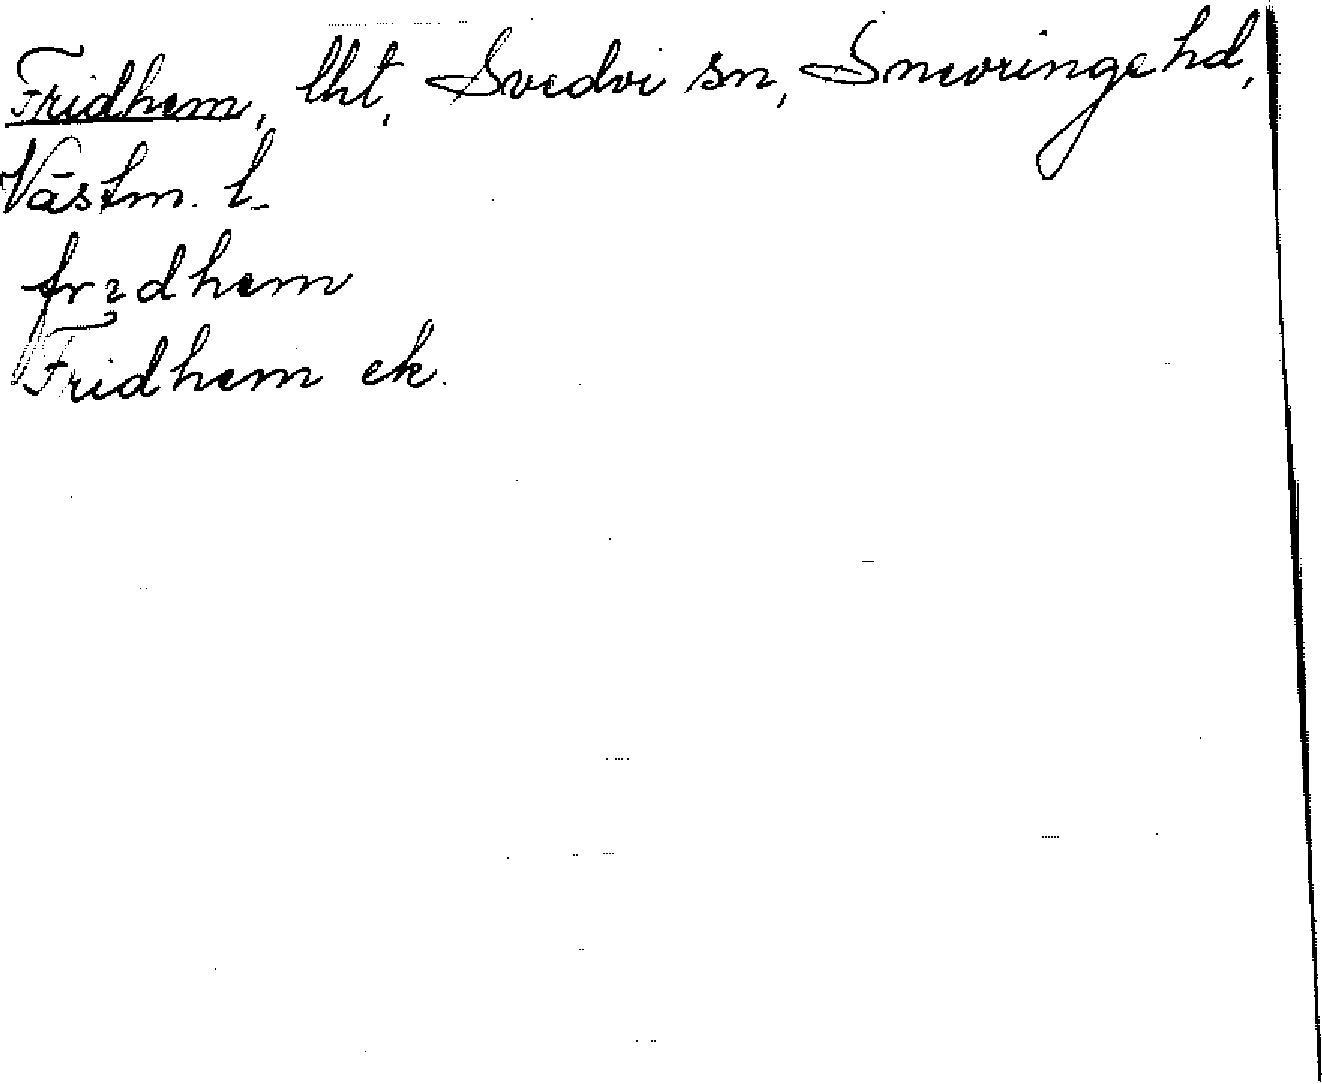 Fridhem, lht, Svedvi sn, Snevringe hd,
Västm. l.
frıdhem
Fridhem ek.